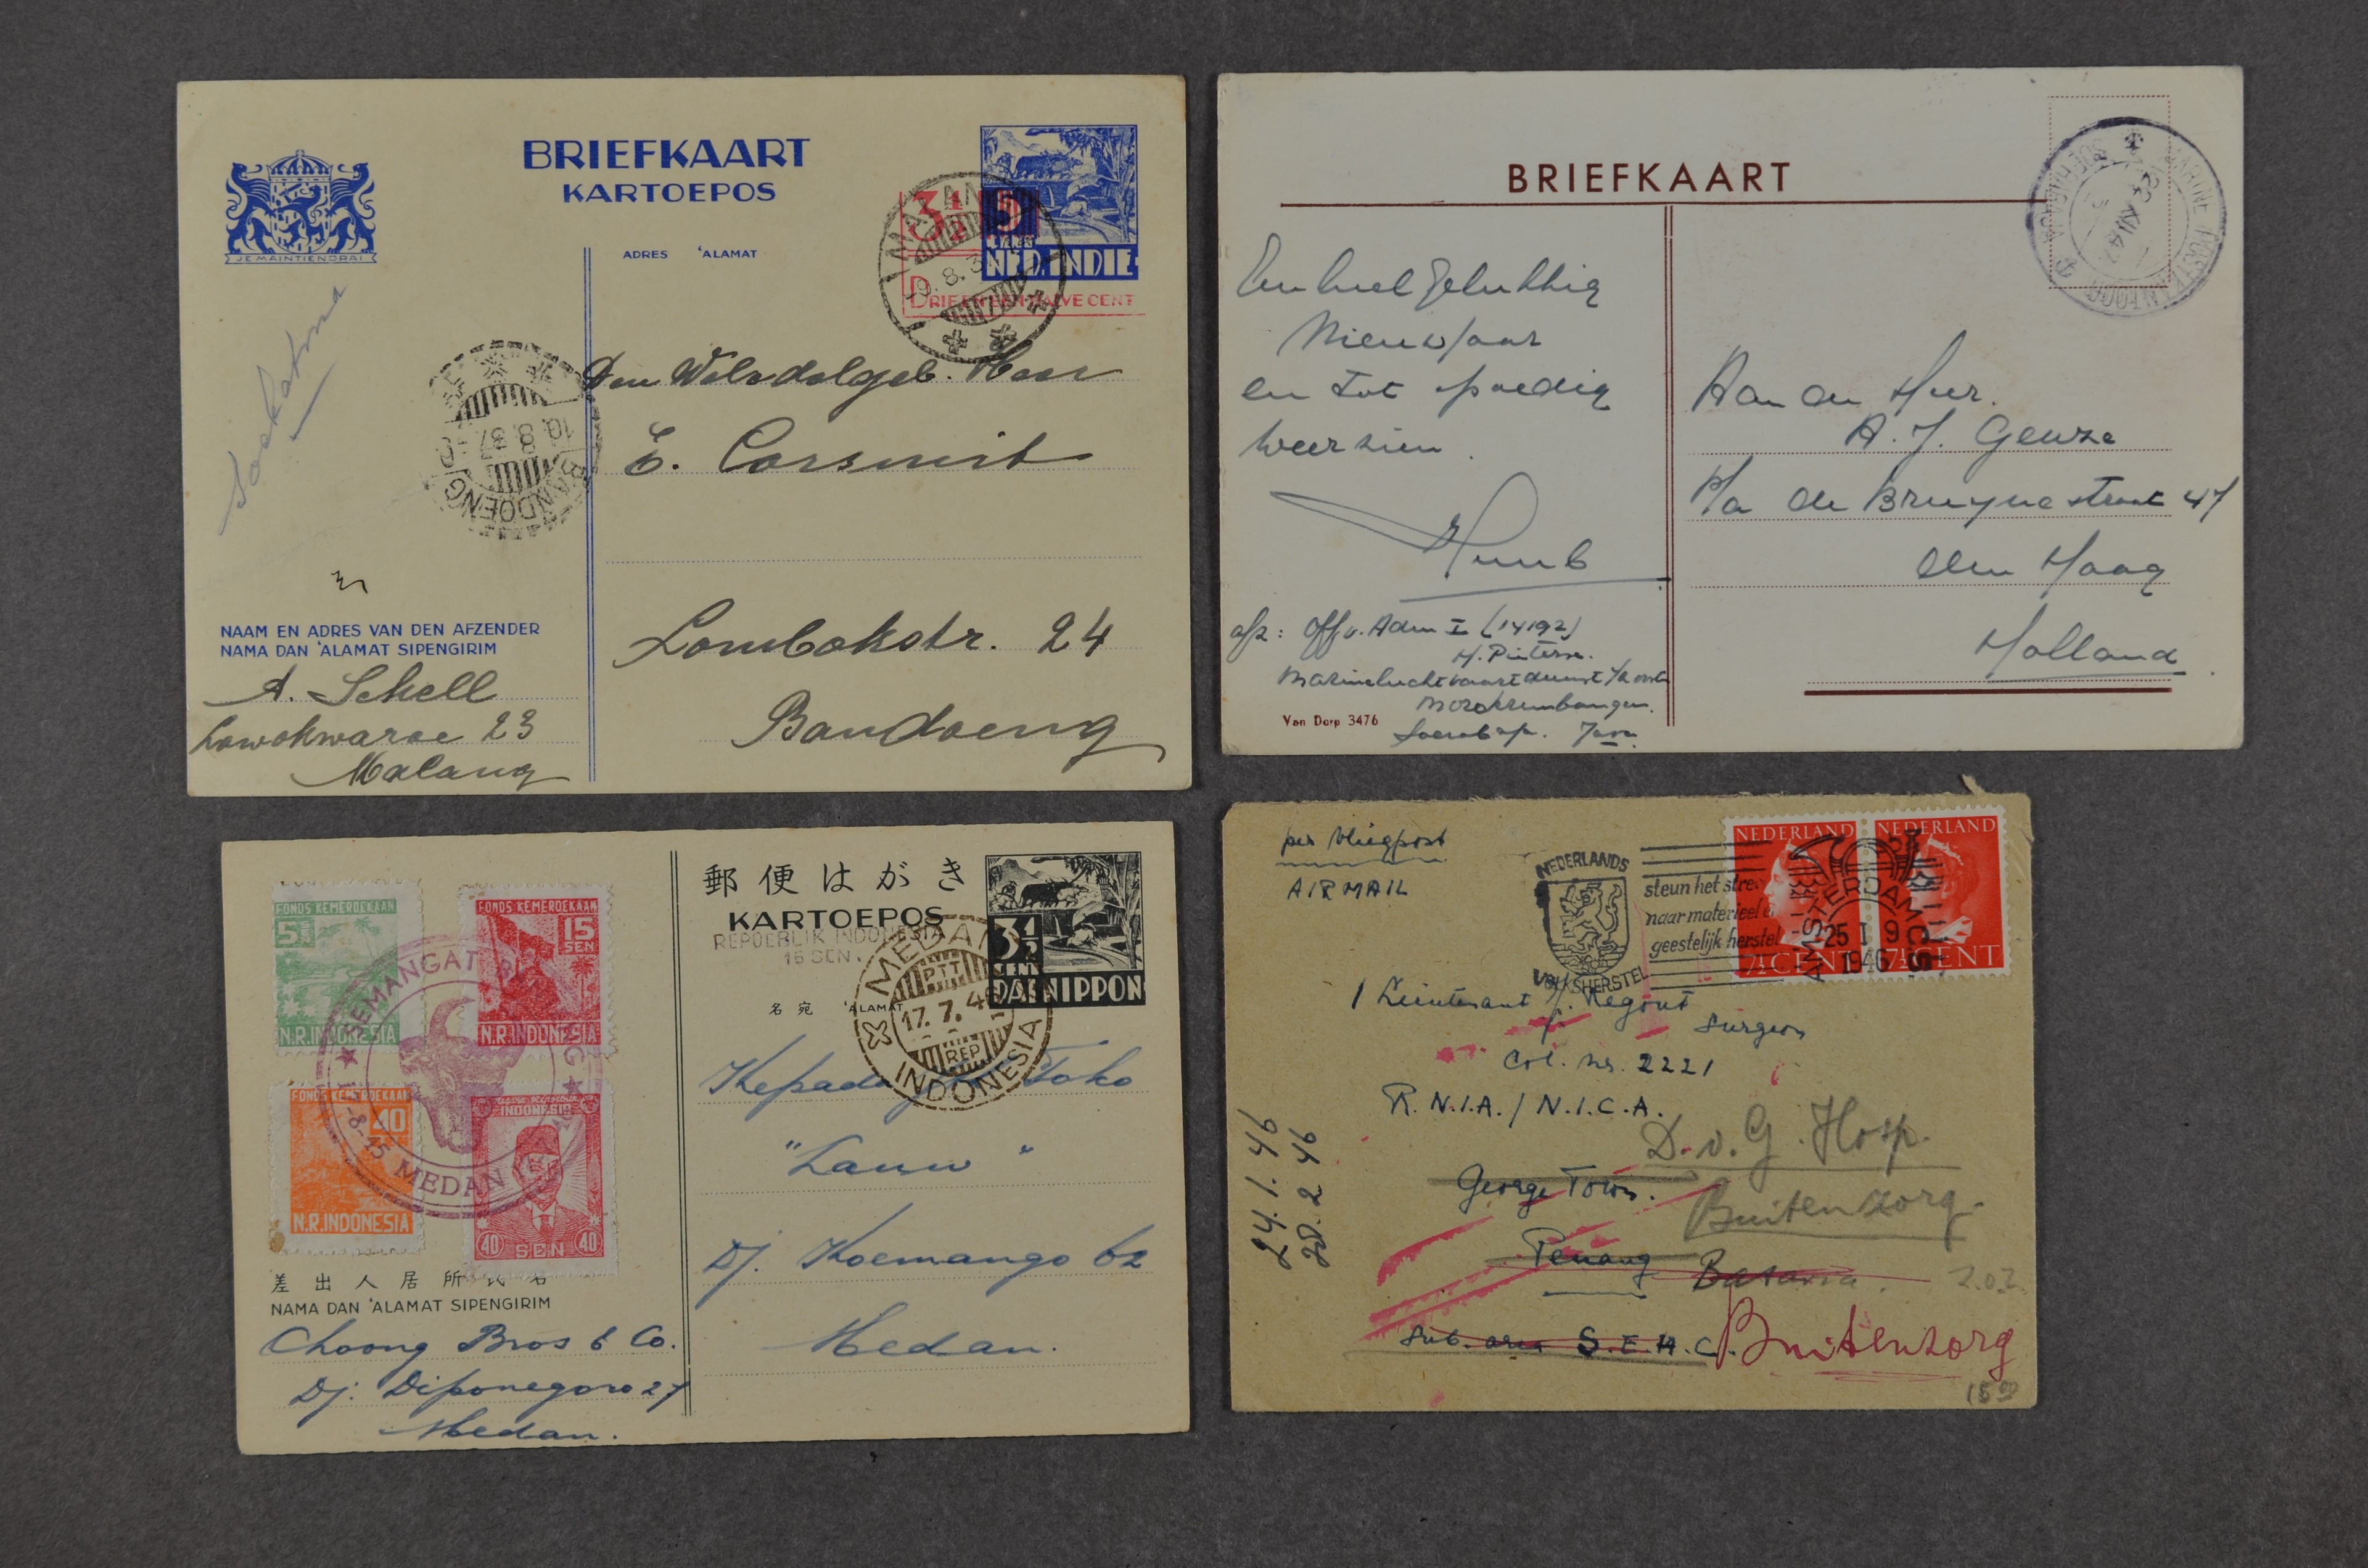 BRIEFKAART
KARTOEPOS
JE MAINTIENDRAI
ADRES 'ALAMAT
3½
5
NED. INDIE
DRIE EN EEN HALVE CENT
MALANG
9.8.37
BANDOENG
10.8.37
Soekatma
Den Weledelgeb. Heer
E. Corsmit
Lombokstr. 24
Bandoeng
NAAM EN ADRES VAN DEN AFZENDER
NAMA DAN 'ALAMAT SIPENGIRIM
A. Schell
Lowokwaroe 23
Malang
BRIEFKAART
MARINE POSTKANTOOR
SOERABAJA
Een heel gelukkig
Nieuwjaar
en tot spoedig
weerzien.
Huub
afz: Off. v. Adm I (14192)
H. Pieterse.
Marineluchtvaartdienst
Morokrembangan.
Soerabaja. Java.
Van Dorp 3476
Aan den Heer.
A. J. Geuze
P/a de Bruynestraat 47
Den Haag
Holland
FONDS KEMERDEKAAN
5 SEN
N.R.INDONESIA
FONDS KEMERDEKAAN
15 SEN
N.R.INDONESIA
FONDS KEMERDEKAAN
40
N.R.INDONESIA
INDONESIA
40 SEN 40
SEMANGAT
17-8-45
MEDAN
郵便はがき
KARTOEPOS
REPOEBLIK INDONESIA
15 SEN.
名宛 'ALAMAT
3½
SEN
DAI NIPPON
MEDAN
PTT
17.7.4
REP
INDONESIA
Kepada Toko
"Lauw"
Dj. Koemango 62
Medan.
差出人居所氏名
NAMA DAN 'ALAMAT SIPENGIRIM
Choong Bros & Co.
Dj. Diponegoro 27
Medan.
per vliegpost
AIRMAIL
NEDERLANDS
VOLKSHERSTEL
steun het stre
naar materieel e
geestelijk herstel
NEDERLAND
7½ CENT
NEDERLAND
7½ CENT
AMSTERDAM CS
25 I 9
1946
1 Luitenant J. Regout
Surgeon
Col. no. 2221
R.N.I.A. / N.I.C.A.
D.v.G. Hosp.
George Town.
Buitenzorg.
Penang
Batavia.
Sub. area S.E.A.C.
Buitenzorg
24.1.46
20.2 46
15